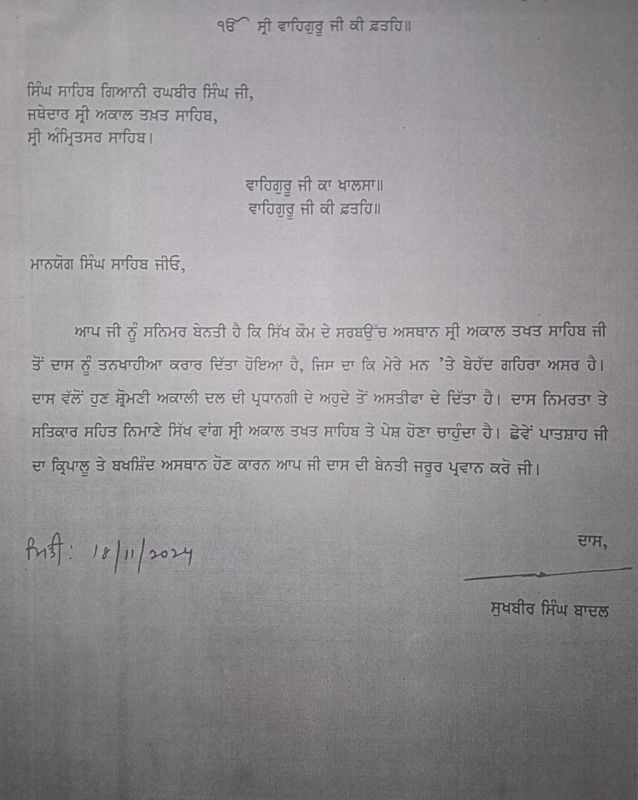 ੴ ਸ੍ਰੀ ਵਾਹਿਗੁਰੂ ਜੀ ਕੀ ਫ਼ਤਹਿ॥
ਸਿੰਘ ਸਾਹਿਬ ਗਿਆਨੀ ਰਘਬੀਰ ਸਿੰਘ ਜੀ,
ਜਥੇਦਾਰ ਸ੍ਰੀ ਅਕਾਲ ਤਖ਼ਤ ਸਾਹਿਬ,
ਸ੍ਰੀ ਅੰਮ੍ਰਿਤਸਰ ਸਾਹਿਬ।
ਵਾਹਿਗੁਰੂ ਜੀ ਕਾ ਖਾਲਸਾ॥
ਵਾਹਿਗੁਰੂ ਜੀ ਕੀ ਫ਼ਤਹਿ॥
ਮਾਨਯੋਗ ਸਿੰਘ ਸਾਹਿਬ ਜੀਓ,
ਆਪ ਜੀ ਨੂੰ ਸਨਿਮਰ ਬੇਨਤੀ ਹੈ ਕਿ ਸਿੱਖ ਕੌਮ ਦੇ ਸਰਬਉੱਚ ਅਸਥਾਨ ਸ੍ਰੀ ਅਕਾਲ ਤਖਤ ਸਾਹਿਬ ਜੀ
ਤੋਂ ਦਾਸ ਨੂੰ ਤਨਖਾਹੀਆ ਕਰਾਰ ਦਿੱਤਾ ਹੋਇਆ ਹੈ, ਜਿਸ ਦਾ ਕਿ ਮੇਰੇ ਮਨ 'ਤੇ ਬੇਹੱਦ ਗਹਿਰਾ ਅਸਰ ਹੈ।
ਦਾਸ ਵੱਲੋਂ ਹੁਣ ਸ਼੍ਰੋਮਣੀ ਅਕਾਲੀ ਦਲ ਦੀ ਪ੍ਰਧਾਨਗੀ ਦੇ ਅਹੁਦੇ ਤੋਂ ਅਸਤੀਫਾ ਦੇ ਦਿੱਤਾ ਹੈ। ਦਾਸ ਨਿਮਰਤਾ ਤੇ
ਸਤਿਕਾਰ ਸਹਿਤ ਨਿਮਾਣੇ ਸਿੱਖ ਵਾਂਗ ਸ੍ਰੀ ਅਕਾਲ ਤਖਤ ਸਾਹਿਬ ਤੇ ਪੇਸ਼ ਹੋਣਾ ਚਾਹੁੰਦਾ ਹੈ। ਛੇਵੇਂ ਪਾਤਸ਼ਾਹ ਜੀ
ਦਾ ਕ੍ਰਿਪਾਲੂ ਤੇ ਬਖਸ਼ਿੰਦ ਅਸਥਾਨ ਹੋਣ ਕਾਰਨ ਆਪ ਜੀ ਦਾਸ ਦੀ ਬੇਨਤੀ ਜਰੂਰ ਪ੍ਰਵਾਨ ਕਰੋ ਜੀ।
ਮਿਤੀ: 18/11/2024
ਦਾਸ,
ਸੁਖਬੀਰ ਸਿੰਘ ਬਾਦਲ